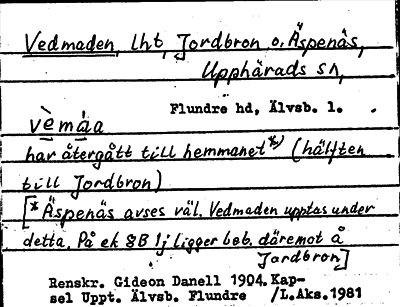 Vedmaden, lht, Jordbron o. Äspenäs,
Upphärads sn,
Flundre hd, Älvsb. l.
vèmáa
har återgått till hemmanet*) (hälften
till Jordbron)
[* Äspenäs avses väl. Vedmaden upptas under
detta. På ek 8B 1j ligger beb. däremot å
Jordbron]
Renskr. Gideon Danell 1904. Kap-
sel Uppt. Älvsb. Flundre /L.Aks.1981